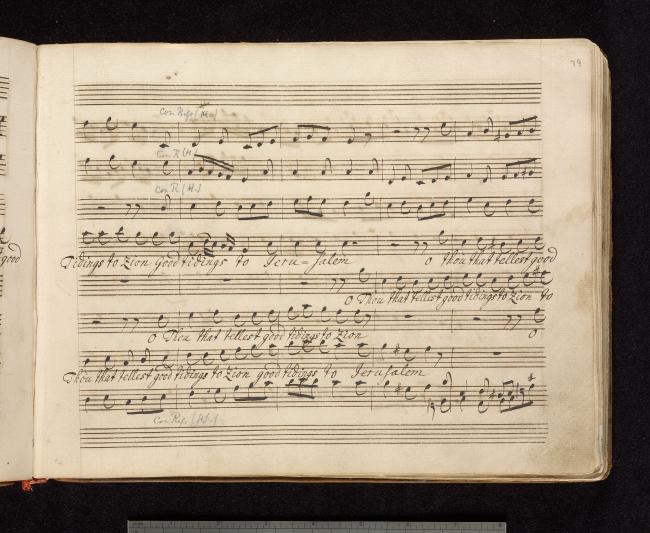 79
Con Rip: (H.)
Con R (H.)
Con R (H.)
good
Tidings to Zion Good tidings to Jeru = salem O thou that tellest good
O Thou that tellest good tidings to Zion to
O Thou that tellest good tidings to Zion O
Thou that tellest good tidings to Zion good tidings to Jerusalem
Con Rip. (H.)